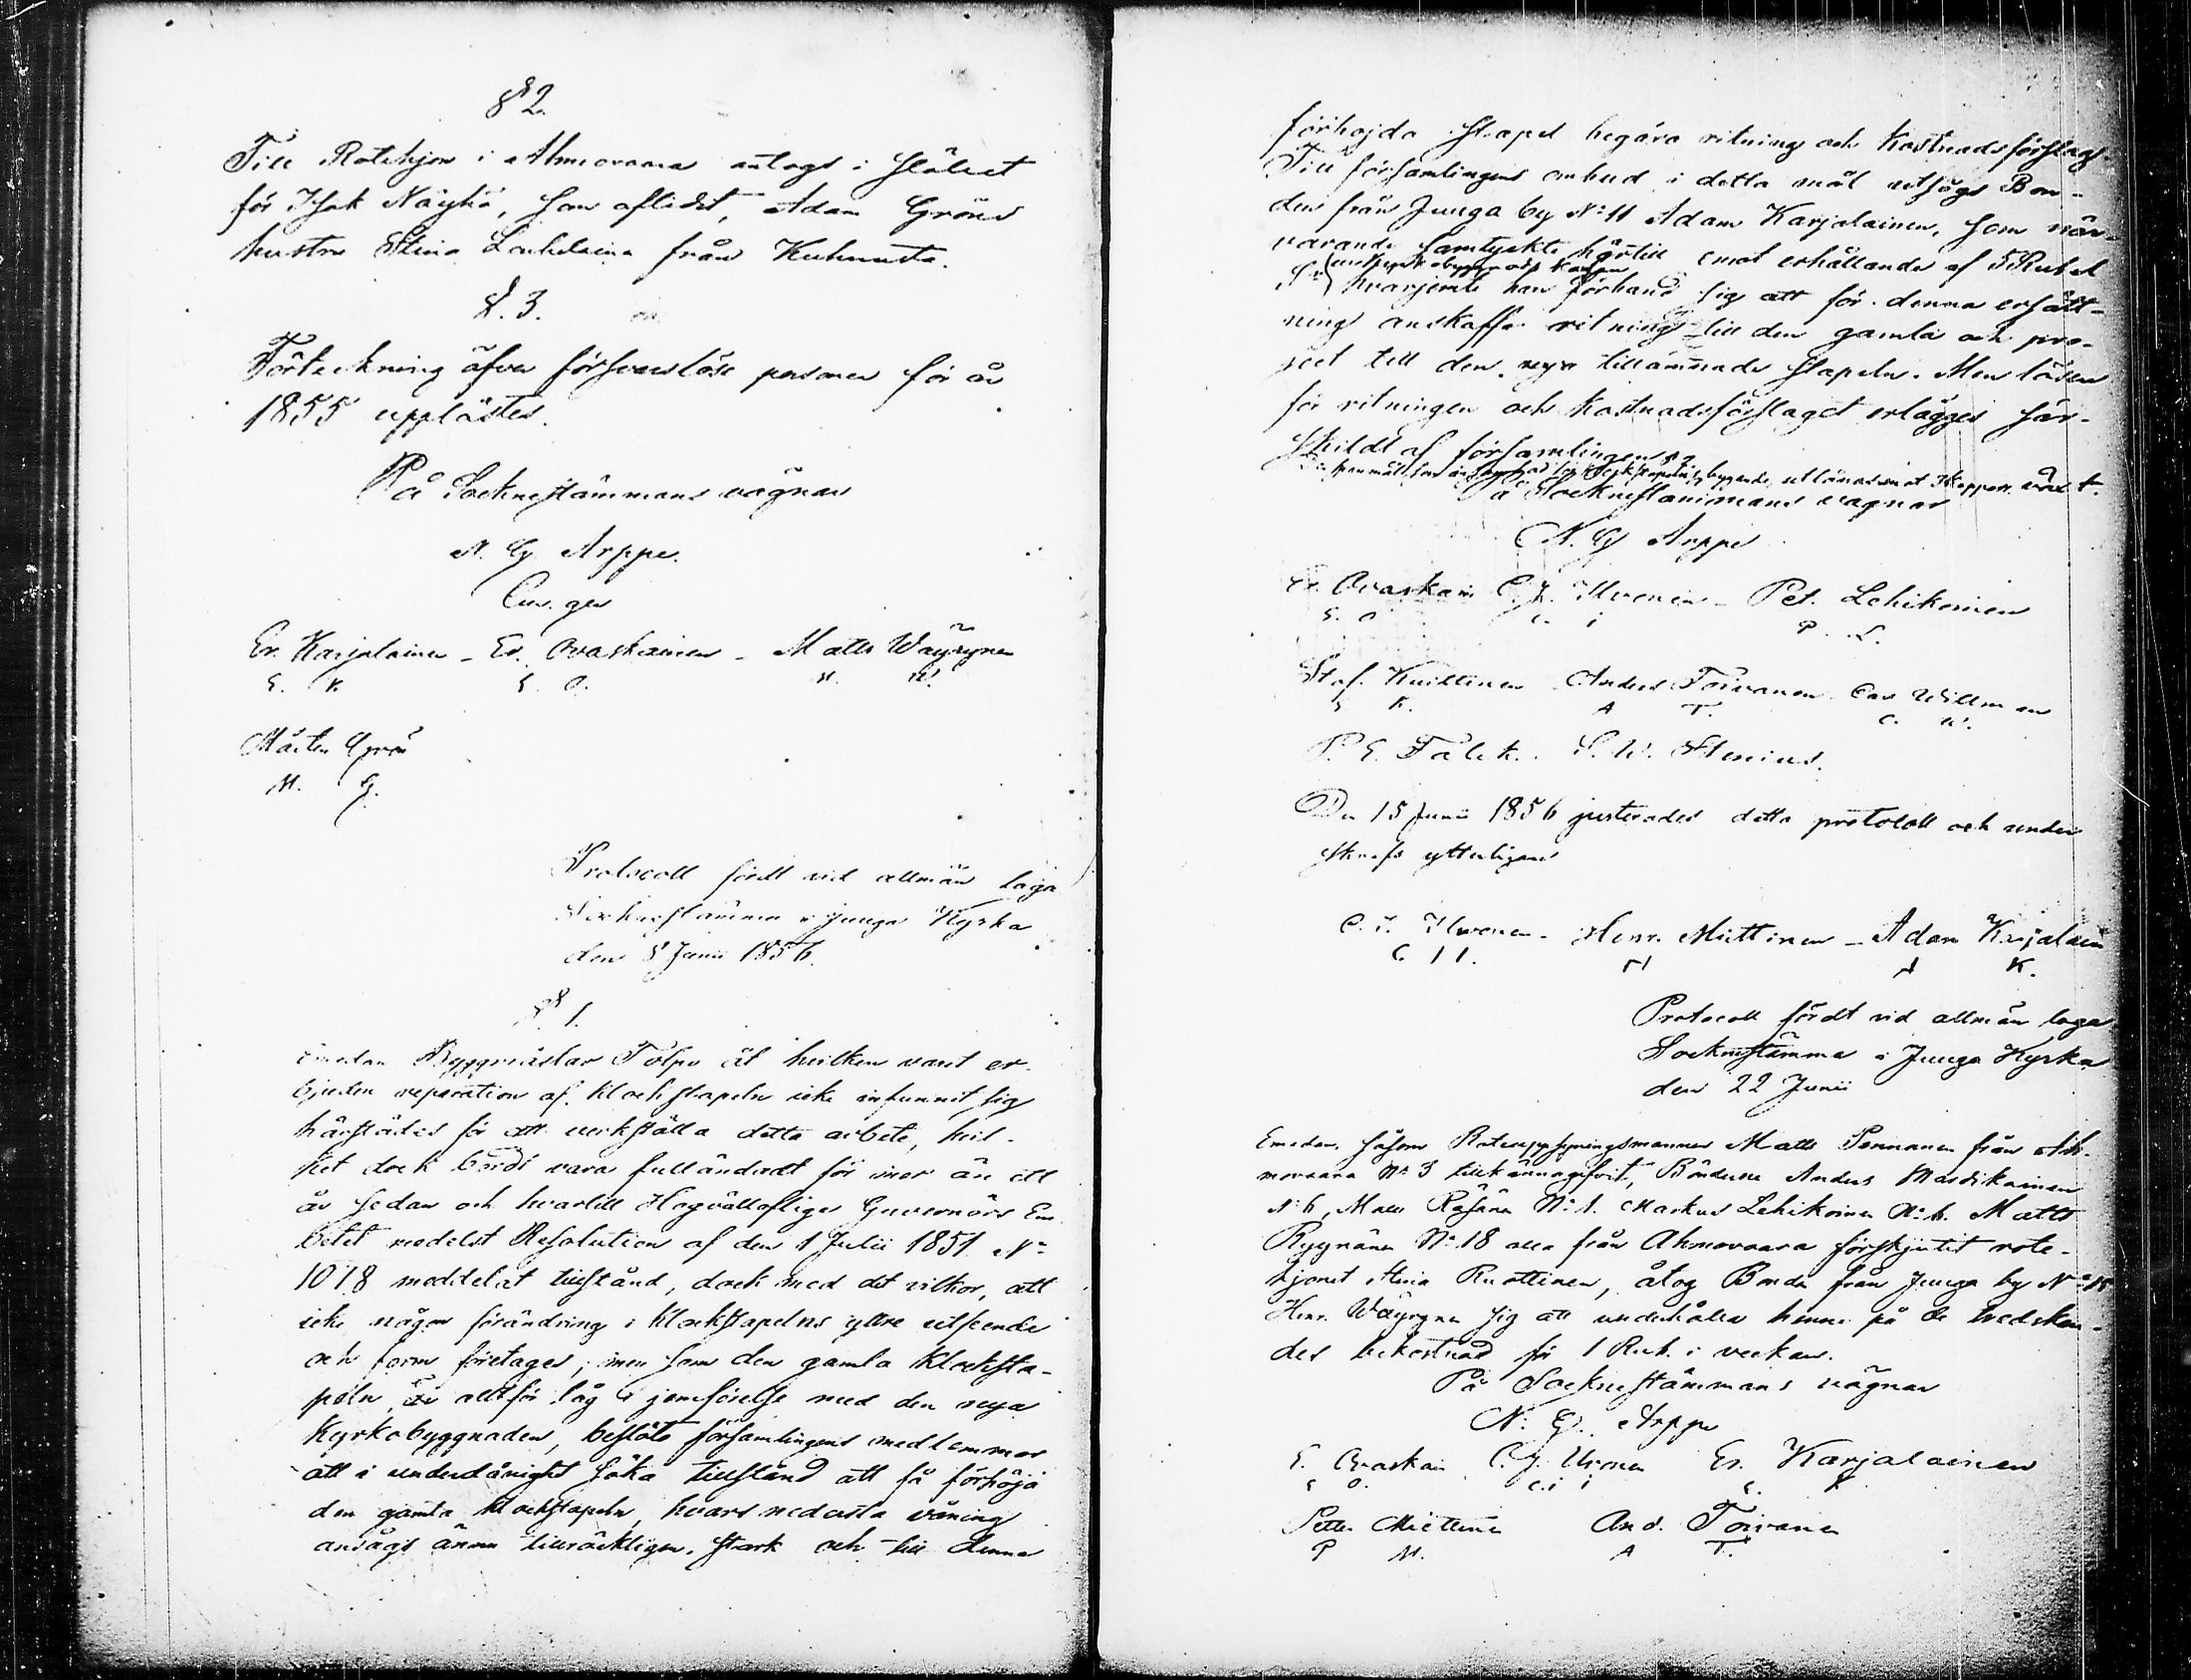 § 2.
Till Rotehjon i Ahmovaara antogs i stället
för Isak Näykä, som aflidit, Adam Gröns
hustru Stina Louhelaina från Kuhnusta.
§. 3.
Förteckning öfver försvarslöse personer för år
1855 upplästes.
På Socknestämmans vägnar
N. G. Arppe.
Er. Karjalainen - Er. Ovaskainen - Matts Wäyrynen
E. K. E. O. M. W.
Mårten Grön
M. G.
Protocoll fördt vid allmän laga
Socknestämma i Juuga Kyrka
den 8 Junii 1856.
§ 1.
Emedan Byggmästar Tolpo åt hvilken varit er-
bjuden reparation af klockstapeln icke infunnit sig
härstädes för att verkställa detta arbete, hvil-
ket dock bordt vara fulländadt för mer än ett
år sedan och hvartill Högvällofliga Guvernörs Em
betet medelst Resolution af den 1 Julii 1851 No
1018 meddelat tillstånd, dock med det vilkor, att
icke någon förändring i klockstapelns yttre utseende
och form företages; men som den gamla klocksta-
peln är alltför låg i jemförelse med den nya
Kyrkobyggnaden, beslöto församlingens medlemmar
att i underdånighet söka tillstånd att få förhöja
den gamla klockstapeln, hvars nedersta våning
ansågs ännu tillräckligen stark och till denna
förhöjda stapel begära ritning och kostnadsförslag.
Till församlingens ombud i detta mål utsågs Bon-
den från Juuga by No 11 Adam Karjalainen, som när-
varande samtyckte härtill emot erhållande af 5 Rubel
Sr hvarjemte han förband sig att för denna ersätt-
ning anskaffa ritning till den gamla och pro-
ject till den nya tillämnade stapeln. Men lösen
för ritningen och kostnadsförslaget erlägges sär-
skildt af församlingen.
På Socknestämmans vägnar
N. G. Arppe
Er. Ovaskain C. J. Ilvonen - Pet. Lehikoinen
E. O C. I P. L.
Staf. Knittinen Anders Toivanen Carl Willman
S K. A T. C. W.
P. E. Falck. S. W. Stenius.
Den 15 Junii 1856 justerades detta protocoll och under
skrefs ytterligare
C. J. Ilvonen - Henr. Miettinen - Adam Karjalain
A K.
Protocoll fördt vid allmän laga
Sockenstämma i Juuga Kyrka
den 22 Junii
Emedan, såsom Roteuppsyningsmannen Matts Pennanen från Ah-
movaara No 3 tillkännagifvit, Bönderne Anders Mardikainen
N: 6, Räsänen No 1. Markus Lehikoinen No 6. Matts
Ryynänen No 18 alla från Ahmovaara förskjutit rote-
hjonet Stina Ruottinen, åtog Bonde från Juuga by No 15
Henr. Wäyrynen sig att underhålla henne på de tredskan-
des bekostnad för 1 Rub. i veckan.
På Sockenstämmans vägnar
N. G. Arppe
E. Ovaskain C. J. Ilvonen Er. Karjalainen
E O. C. I E. K
Petter Miettinen And. Toivanen
P M. A T.